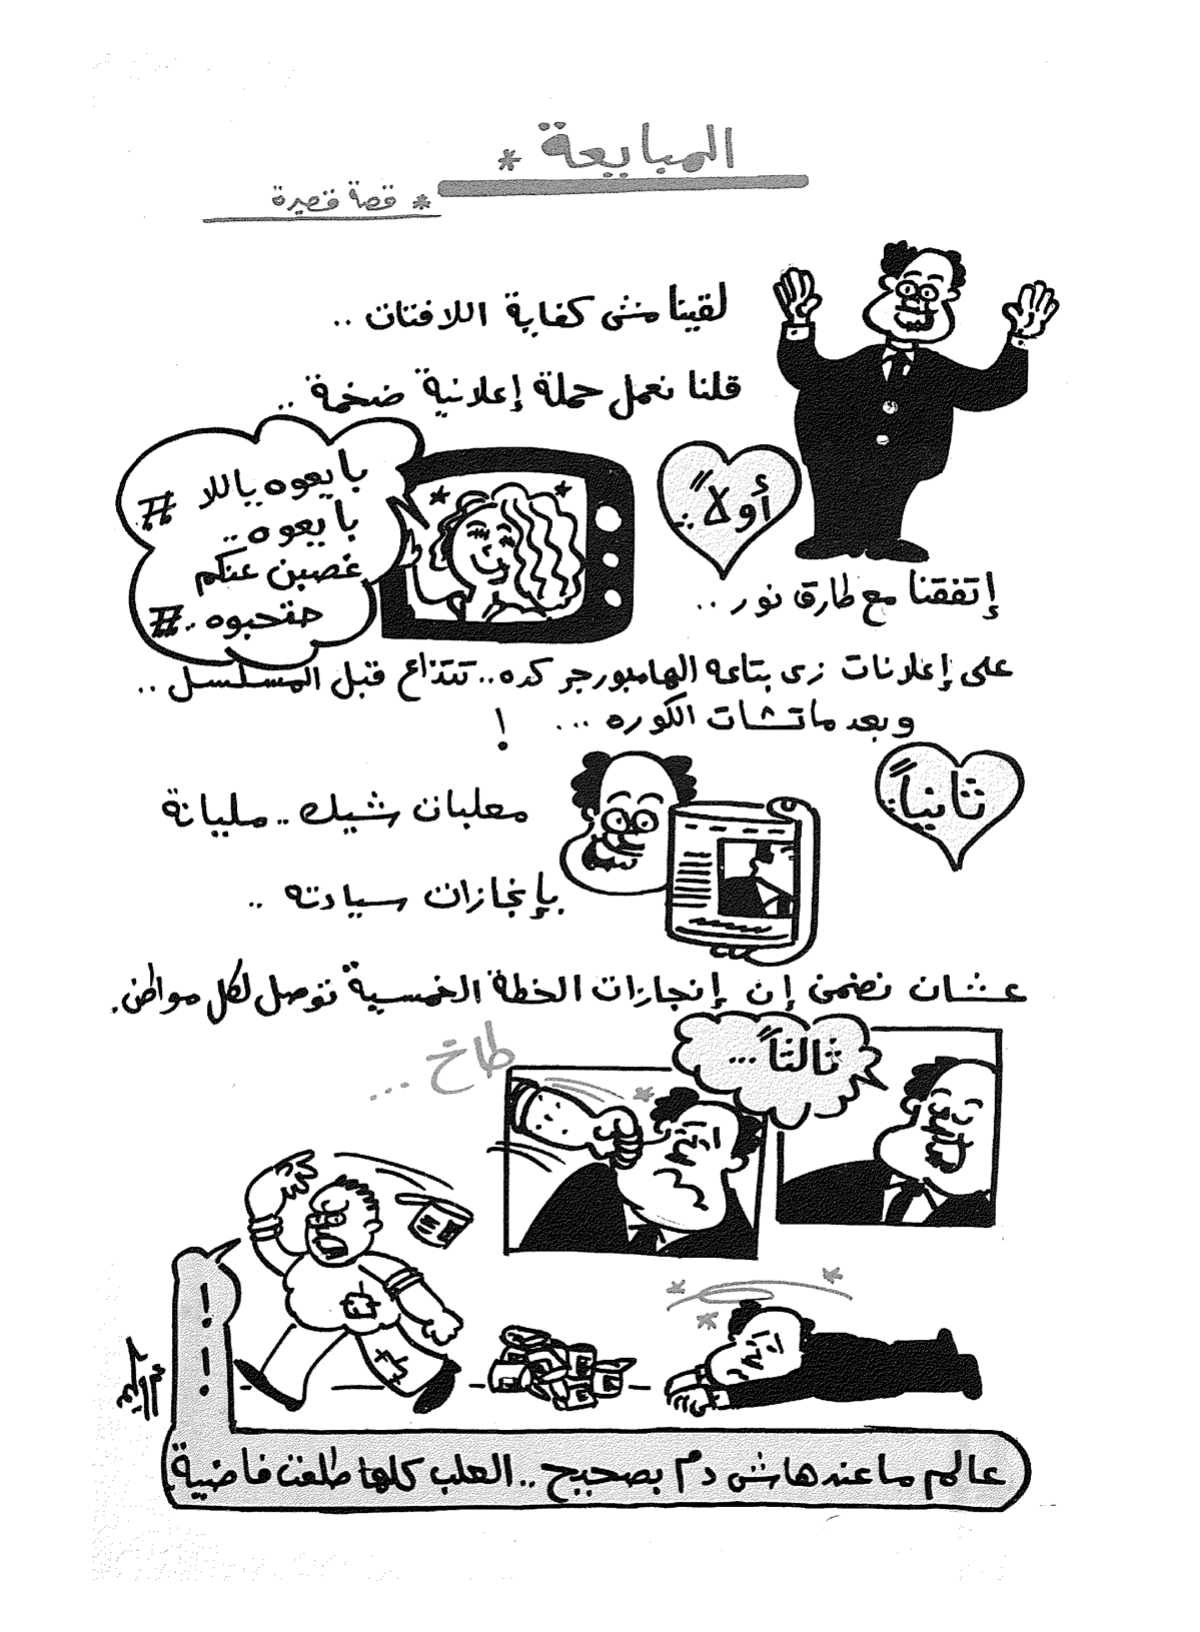 المبايعة *
* قصة قصيرة
لقينا مش كفاية اللافتات ..
قلنا نعمل حملة إعلانية ضخمة ..
أولاً ..
# بايعوه ياللا
بايعوه ..
غصبن عنكم
حتحبوه .. #
إتفقنا مع طارق نور ..
على إعلانات زى بتاعه الهامبورجر كده .. تتذاع قبل المسلسل ..
وبعد ماتشات الكوره ... !
ثانياً :
معلبات شيك .. مليانة
بإنجازات سيادته ..
عشان نضمن إن إنجازات الخطة الخمسية توصل لكل مواطن .
ثالثاً ...
طاخ ...
! ! !
عالم ماعندهاش دم بصحيح .. العلب كلها طلعت فاضية